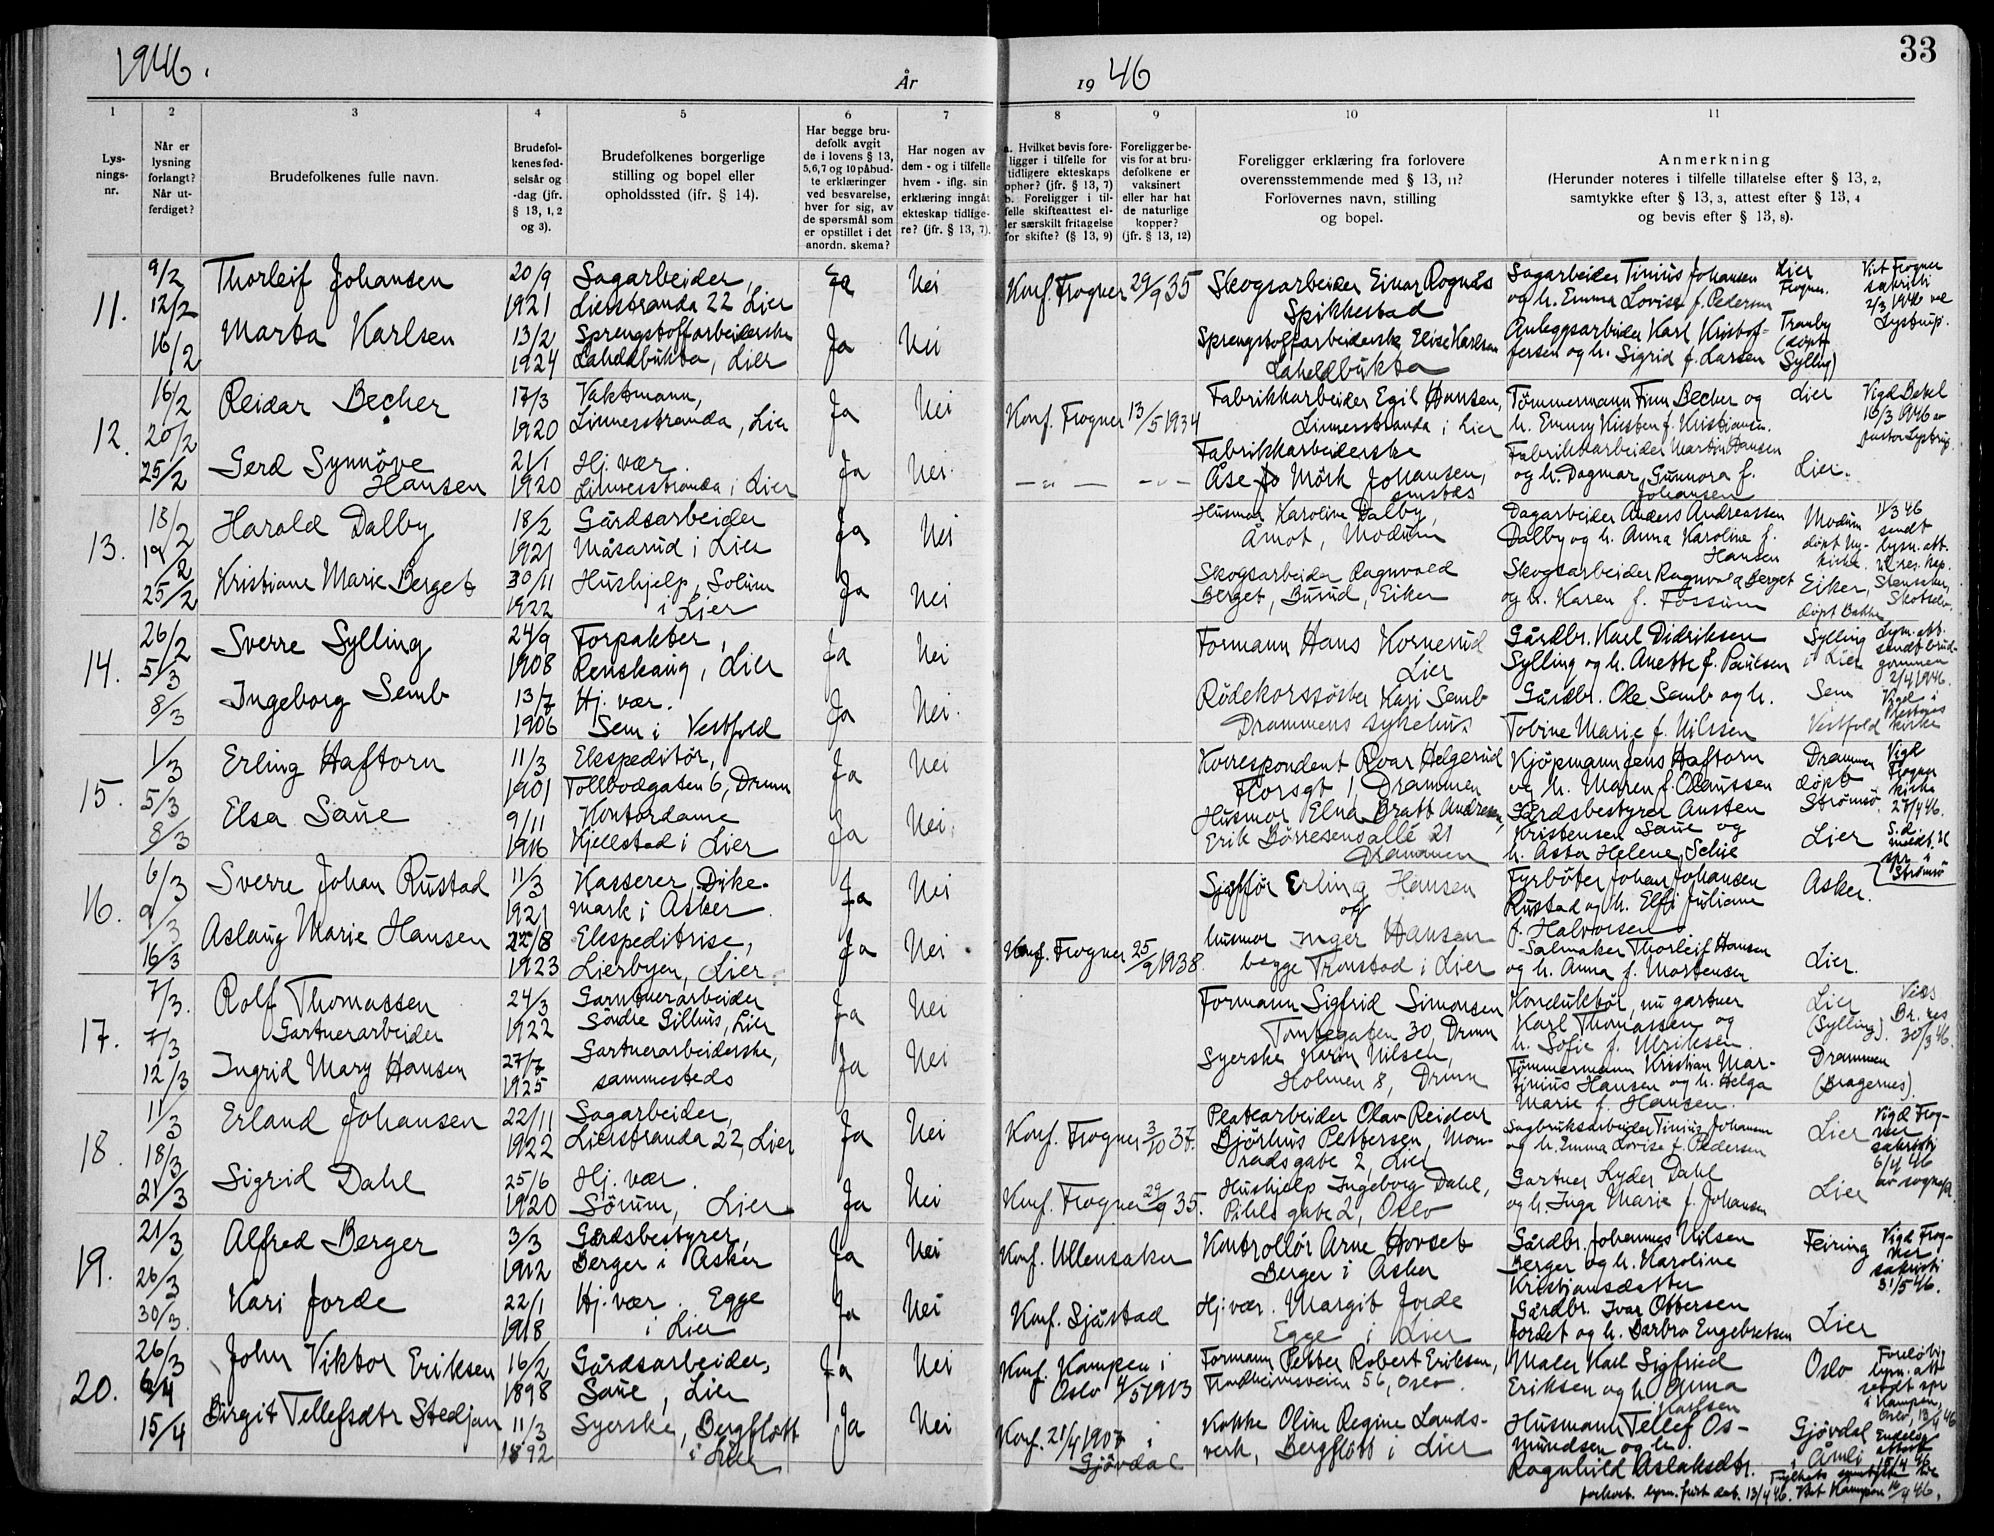 1946.
År
19 46
33
1
2
3
4
5
6
7
8
9
10
11
Lys-
nings-
nr.
Når er
lysning
forlangt?
Når ut-
ferdiget?
Brudefolkenes fulle navn.
Brudefol-
kenes fød-
selsår og
-dag (jfr.
§ 13, 1, 2
og 3).
Brudefolkenes borgerlige
stilling og bopel eller
opholdssted (jfr. § 14).
Har begge bru-
defolk avgit
de i lovens § 13,
5,6,7 og 10 påbud-
te erklæringer
ved besvarelse,
hver for sig, av
de spørsmål som
er opstillet i det
anordn. skema?
Har nogen av
dem - og i tilfelle
hvem - iflg. sin
erklæring inngåt
ekteskap tidlige-
re? (jfr. § 13, 7).
a. Hvilket bevis fore-
ligger i tilfelle for
tidligere ekteskaps
ophør? (jfr. § 13, 7)
b. Foreligger i til-
felle skifteattest el-
ler særskilt fritagelse
for skifte? (§ 13, 9)
Foreligger be-
vis for at bru-
defolkene er
vaksinert
eller har hat
de naturlige
kopper?
(jfr. § 13, 12)
Foreligger erklæring fra forlovere
overensstemmende med § 13, 11?
Forlovernes navn, stilling
og bopel.
Anmerkning
(Herunder noteres i tilfelle tillatelse efter § 13, 2,
samtykke efter § 13, 3, attest efter § 13, 4
og bevis efter § 13, 8).
11.
9/2
12/2
16/2
Thorleif Johansen
20/9
1921
Sagarbeider,
Lierstranda 22 Lier
Ja
Nei
Konf. Frogner 29/9 35
Skogsarbeider Einar Rognås
Spikkestad
Sagarbeider Tinius Johansen
og h. Emma Lovise f. Pedersen
Lier
Frogner.
Viet Frogner
sakristi
2/3 1946 ve
Lystrup.
Marta Karlsen
13/2
1924
Sprengstoffarbeiderske
Lahellbukta, Lier
Ja
Nei
Sprengstoffarbeiderske Elise Karlsen
Lahellbukta
Anleggsarbeider Karl Kristof-
fersen og h. Sigrid f. Larsen
Tranby
(døpt
Sylling)
12.
16/2
20/2
25/2
Reidar Becher
17/3
1920
Vaktmann,
Linnesstranda, Lier
Ja
Nei
Konf. Frogner 13/5 1934
Fabrikkarbeider Egil Hansen,
Linnesstranda i Lier
Tømmermann Finn Becher og
h. Emmy Kirsten f. Kristiansen.
Lier
Vigd Betel
16/3 1946 av
pastor Lystrup.
Gerd Synnøve
Hansen
21/1
1920
Hj. vær.
Linnesstranda i Lier
Ja
Nei.
— „ — — „ —
Fabrikkarbeiderske
Åse Mörk Johansen,
smstds
Fabrikkarbeider Martin Hansen
og h. Dagmar Gunnora f.
Johansen
Lier.
13.
18/2
19/2
25/2
Harald Dalby
18/2
1921
Gårdsarbeider
Måsarud i Lier
Ja
Nei
Husmor Karoline Dalby,
Åmot, Modum
Dagarbeider Anders Andreassen
Dalby og h. Anna Karoline f.
Hansen
Modum
døpt Ny-
kirke
11/3 46
sendt
lysn. att.
til res. kap.
Stensaker,
Skotselv.
Kristiane Marie Berget
30/11
1922
Hushjelp, Solum
i Lier
Ja
Nei
Skogsarbeider Ragnvald
Berget, Burud, Eiker
Skogsarbeider Ragnvald Berget
og h. Karen f. Fossum
Eiker,
døpt Bakke
14.
26/2
5/3
8/3
Sverre Sylling
24/9
1908
Forpakter,
Renskaug, Lier
Ja
Nei
Formann Hans Kornerud
Lier
Gårdbr. Karl Didriksen
Sylling og h. Anette f. Paulsen
Sylling
i Lier
Lysn. att.
sendt brud-
gommen
2/4 1946.
Vigd i
kirke
Ingeborg Semb
13/7
1906
Hj. vær.
Sem i Vestfold
Ja
Nei.
Rödekorssøster Kari Semb
Drammens sykehus
Gårdbr. Ole Semb og h.
Tobine Marie f. Nilsen
Sem
Vestfold
15.
1/3
5/3
8/3
Erling Haftorn
11/3
1901
Ekspeditør,
Tollbodgaten 6, Drmn
Ja
Nei
Korrespondent Roar Helgerud
Florsgt 1, Drammen
Kjöpmann Jens Haftorn
og h. Maren f. Olaussen
Drammen
døpt
Strømsø
Vigd
Frogner
kirke
27/4 46.
Elsa Saue
9/11
1916
Kontordame
Kjellstad i Lier
Ja
Nei.
Husmor Elna Bratt Andresen,
Erik Börresensallé 21
Drammen
Gårdsbestyrer Austen
Kristensen Saue og
h. Asta Helene Selie
Lier
S. d.
meldt til
spr. i
Strømsø
16.
6/3
9/3
16/3
Sverre Johan Rustad
11/3
1921
Kasserer, Dike-
mark i Asker.
Ja
Nei
Sjåffør Erling Hansen
og
husmor Inger Hansen
begge Tronstad i Lier
Fyrbøter Johan Johansen
Rustad og h. Elfi Juliane
f. Halvorsen.
Asker.
Aslaug Marie Hansen
22/8
1923
Ekspeditrise,
Lierbyen, Lier.
Ja
Nei
Konf. Frogner 25/9 1938.
Salmaker Thorleif Hansen
og h. Anna f. Mortensen
Lier.
17.
7/3.
7/3
12/3
Rolf Thomassen
Gartnerarbeider
24/3
1922
Gartnerarbeider
Söndre Gilhus, Lier
Ja
Nei
Formann Sigfrid Simonsen
Tomtegaten 30, Drmn
Konduktör, nu gartner
Karl Thomassen og
h. Sofie f. Ulriksen.
Lier
(Sylling).
Vies
Br. nes
30/3 46.
Ingrid Mary Hansen
27/7
1925
Gartnerarbeiderske,
sammesteds
Ja
Nei
Syerske Karin Nilsen,
Holmen 8, Drmn
Tømmermann Kristian Mar-
tinius Hansen og h. Helga
Marie f. Hansen.
Drammen
(Bragernes).
18.
11/3
18/3
21/3
Erland Johansen
22/11
1922
Sagarbeider,
Lierstranda 22, Lier
Ja
Nei
Konf. Frogner 3/10 37.
Platearbeider Olav Reidar
Bjørhus Pettersen, Mon-
radsgate 2, Lier
Sagbruksarbeider Tinius Johansen
og h. Emma Lovise f. Pedersen
Lier
Vigd Frog-
ner
sakristi
6/4 46
av sognepr.
Sigrid Dahl
25/6
1920
Hj. vær.
Sörum, Lier.
Ja
Nei
Konf. Frogner 29/9 35.
Hushjelp Ingeborg Dahl,
Pihls gate 2, Oslo
Gartner Lyder Dahl
og h. Inga Marie f. Johansen
Lier
19.
21/3
26/3
30/3.
Alfred Berger
3/3
1912
Gårdsbestyrer,
Berger i Asker
Ja
Nei
Konf. Ullensaker
Kontrollör Arne Hovset
Berger i Asker
Gårdbr. Johannes Nilsen
Berger og h. Karoline
Kristjansdatter
Feiring
Vigd Frog-
ner
sakristi
31/5 46.
Kari Jorde
22/1
1918
Hj. vær. Egge
i Lier
Ja
Nei
Konf. Sjåstad
Hj. vær. Margit Jorde
Egge i Lier
Gårdbr. Ivar Ottersen
Jordet og h. Barbro Engebretsen
Lier
20.
26/3
6/4
15/4
John Viktor Eriksen
16/2
1898
Gårdsarbeider,
Saue, Lier
Ja
Nei
Konf. Kampen i
Oslo 4/5 1913
Formann Petter Robert Eriksen,
Trondheimsveien 56, Oslo.
Maler Karl Sigfried
Eriksen og h. Anna
Karlsen
Oslo
Foreløbig
lysn. att
sendt spr
i Kampen,
Oslo, 13/4 46
Birgit Tellefsdtr Stedjan
11/3
1892
Syerske, Bergflött
i Lier
Ja
Nei
Konf. 21/4 1907 i
Gjövdal
Kokke Oline Regine Lands-
verk, Bergflött i Lier
Husmann Tellef Os-
mundsen og h.
Ragnhild Aslaksdtr.
Gjövdal
i Åmli
Endelig
attest
15/4 46
Fylkets samtykke til
forkort. lysn. frist dat. 13/4 46. Viet Kampen 16/4 46.